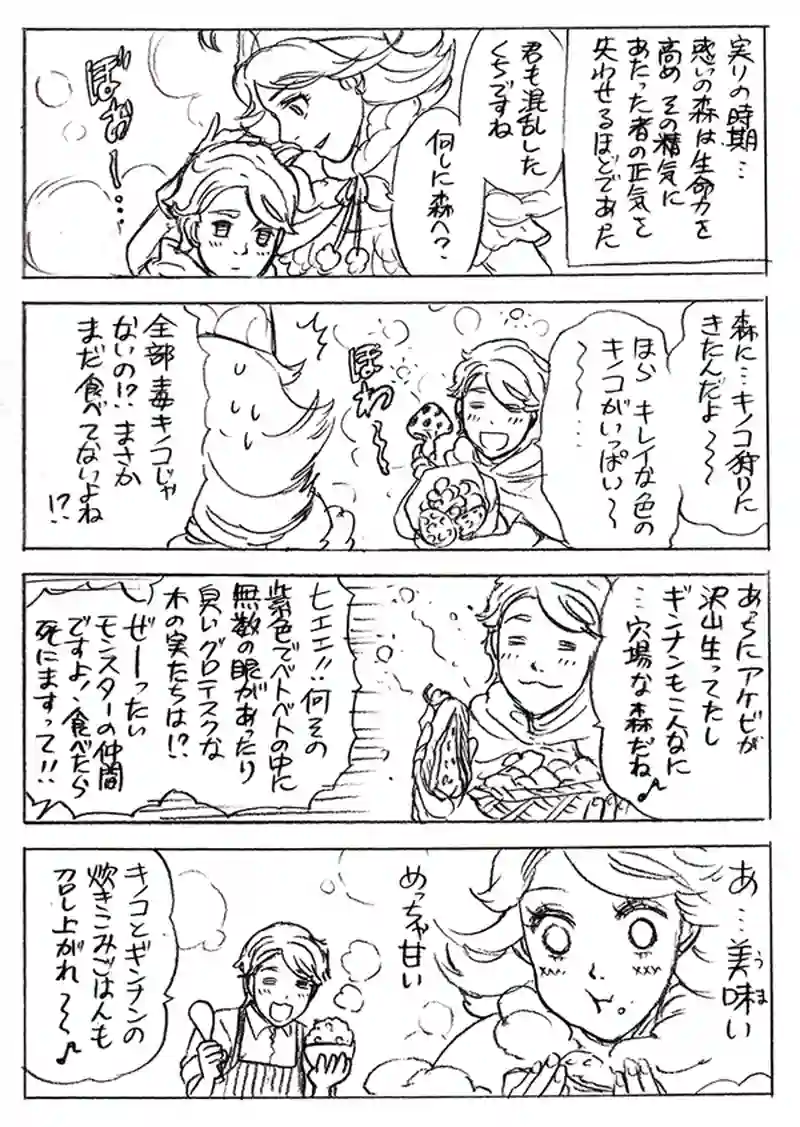 実りの時期…
惑いの森は生命力を
高め その精気に
あたった者の正気を
失わせるほどであった
君も混乱した
くちですね
何しに森へ?
ぼおー…
森に…キノコ狩りに
きたんだよ〜〜
ほら キレイな色の
キノコがいっぱい〜
〜〜
ほわ〜〜
全部毒キノコじゃ
ないの!?まさか
まだ食べてないよね
!?
あっちにアケビが
沢山生ってたし
ギンナンもこんなに
…穴場な森だね♪
ヒエエ!!何その
紫色でベトベトの中に
無数の眼があったり
臭いグロテスクな
木の実たちは!?
ぜーったい
モンスターの仲間
ですよ!食べたら
死にますって!!
あ…美味い
うま
めっちゃ甘い
キノコとギンナンの
炊きこみごはんも
召し上がれ〜〜♪